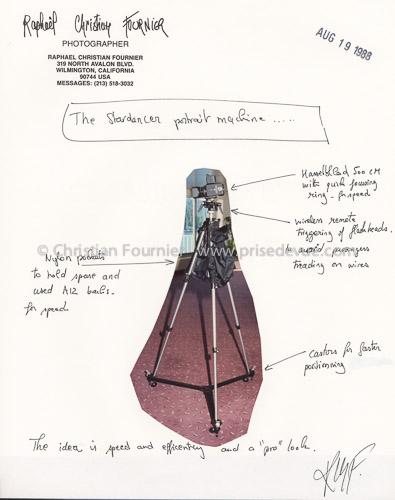 Raphaël Christian FOURNIER
PHOTOGRAPHER
RAPHAEL CHRISTIAN FOURNIER
319 NORTH AVALON BLVD.
WILMINGTON, CALIFORNIA
90744 USA
MESSAGES: (213) 518-3032
AUG 19 1988
The Stardancer portrait machine .....
Hasselblad 500 CM
with quick focusing
ring - for speed
wireless remote
triggering of flash heads.
to avoid passengers
treading on wires
© Christian Fournier www.prisedevue.com
Nylon
to hold spare and
used A12 backs.
for speed
castors for faster
positionning
The idea is speed and efficientcy and a "pro" look.